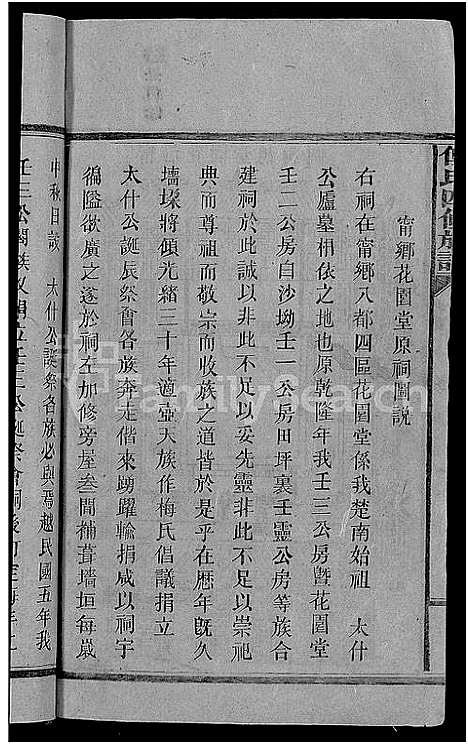 甯鄉花園堂原祠圖說
右祠在甯鄉八都四區花園堂係我楚南始祖 太什
公廬墓相依之地也原乾隆年我壬三公房暨花園堂
壬二公房白沙坳壬一公房田坪裏壬靈公房等族合
建祠於此誠以非此不足以妥先靈非此不足以崇祀
典而尊祖而敬宗而收族之道皆於是乎在厯年旣久
墻垜將傾光緒三十年適壺天族作梅氏倡議捐立
太什公誕辰祭會各族奔走偕來踴躍輸捐咸以祠宇
褊隘欲廣之遂於祠左加修旁屋叁間補葺墻垣每嵗
中秋目設 太什公誕祭各族必與焉越民國五年我
壬三公闔族又開立壬三公誕祭會嗣後訂定每年
氏四修族譜
FamilySearch